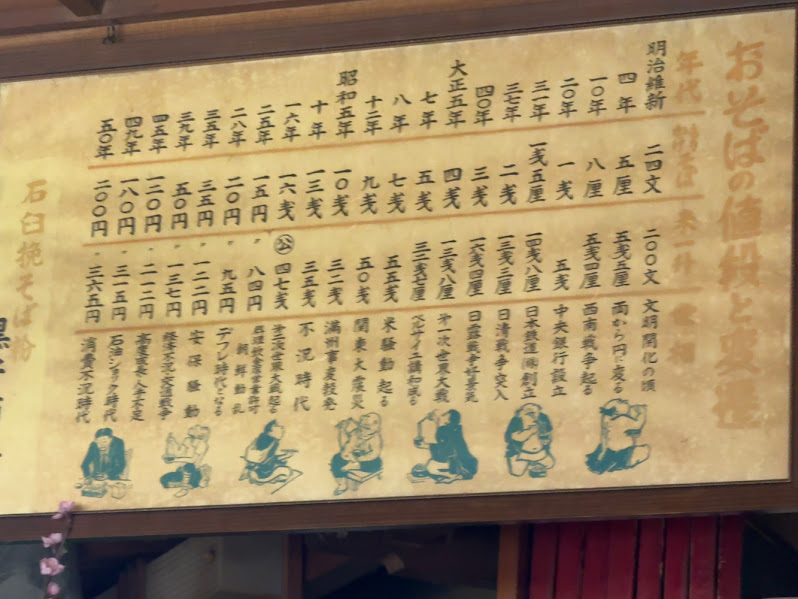 おそばの値段と
年代 米一升
明治維新 二四文 二〇〇文 文明開化の頃
四年 五厘 五銭五厘 両から円に変る
一〇年 八厘 五銭四厘 西南戦争起る
二〇年 一銭 五銭 中央銀行設立
三一年 一銭五厘 一四銭八厘 日本鉄道㈱創立
三七年 二銭 一三銭三厘 日清戦争突入
四〇年 三銭 一六銭四厘 日露戦争好景気
大正五年 四銭 一三銭八厘 第一次世界大戦
七年 五銭 三二銭七厘 ベルサイユ講和成る
八年 七銭 五五銭 米騒動起る
十二年 九銭 五〇銭 関東大震災
昭和五年 一〇銭 三二銭 満州事変勃発
十年 一三銭 三五銭 不況時代
一六年 一六銭 公 四七銭 第二次世界大戦起る
二五年 一五円 〃 八四円 営業許可 朝鮮動乱
二八年 二〇円 〃 九五円 デフレ時代となる
三五年 三五円 〃 一二二円 安保騒動
三九年 五〇円 〃 一三七円 経済不況交通戦争
四五年 一二〇円 〃 二一二円 高度成長人手不足
四九年 一八〇円 〃 三一五円 石油ショック時代
五〇年 二〇〇円 〃 三六五円 消費不況時代
石臼挽そば粉